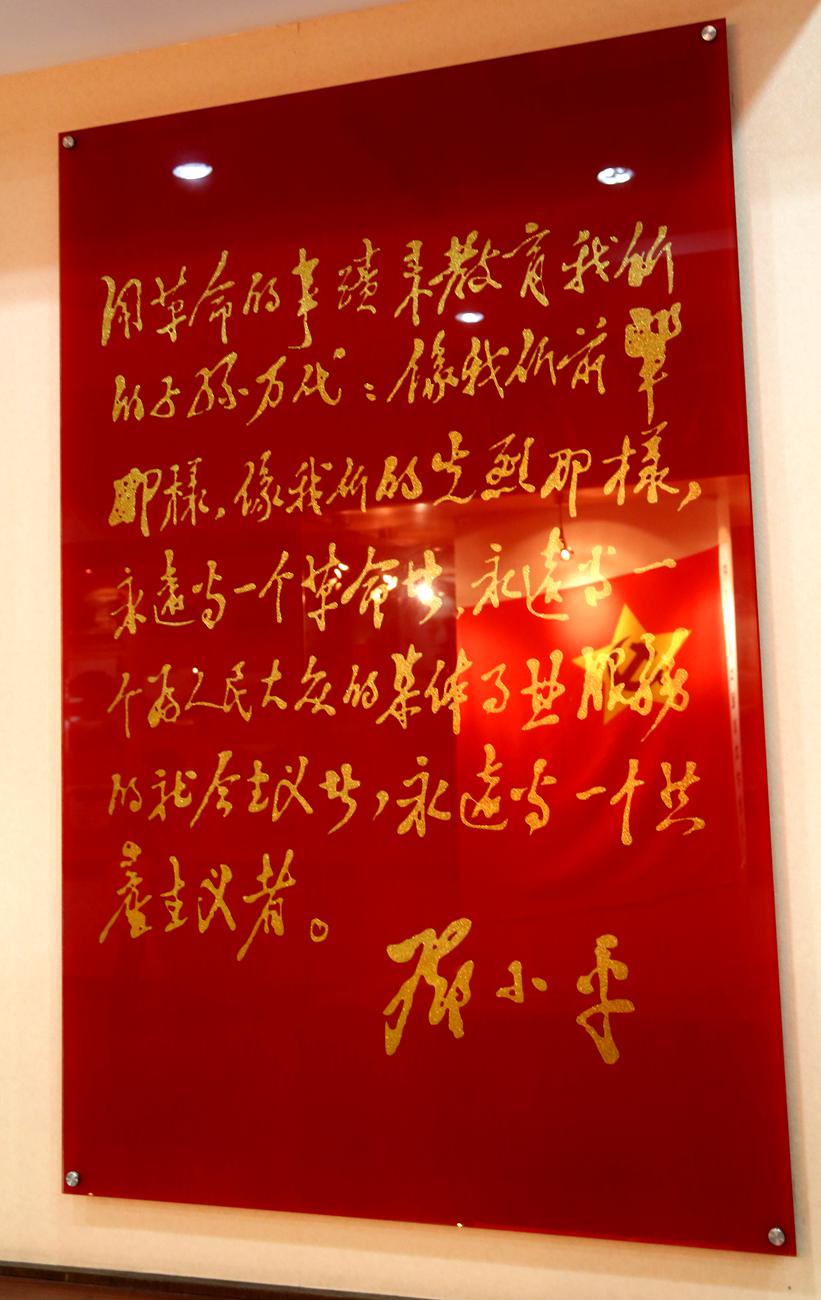 用革命的事蹟来教育我们
的子孙万代：像我们前輩
那樣，像我们的先烈那樣，
永遠当一个革命者，永遠当一
个为人民大众的集体事业服務
的社会主义者，永遠当一个共
產主义者。
鄧小平